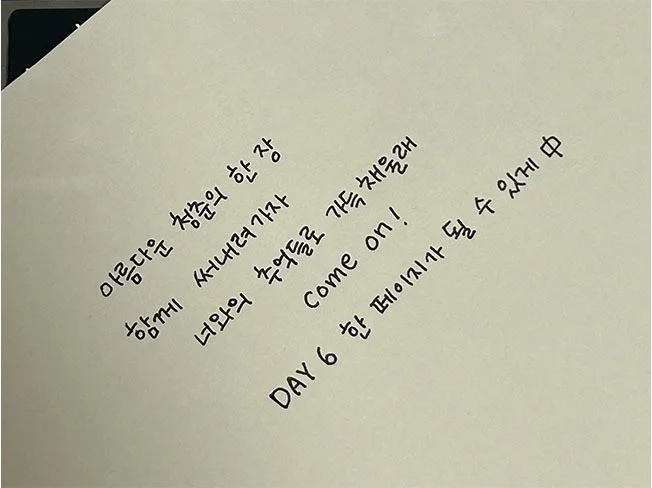 아름다운 청춘의 한 장
함께 써내려가자
너와의 추억들로 가득 채울래
come on!
DAY 6 한 페이지가 될 수 있게 中